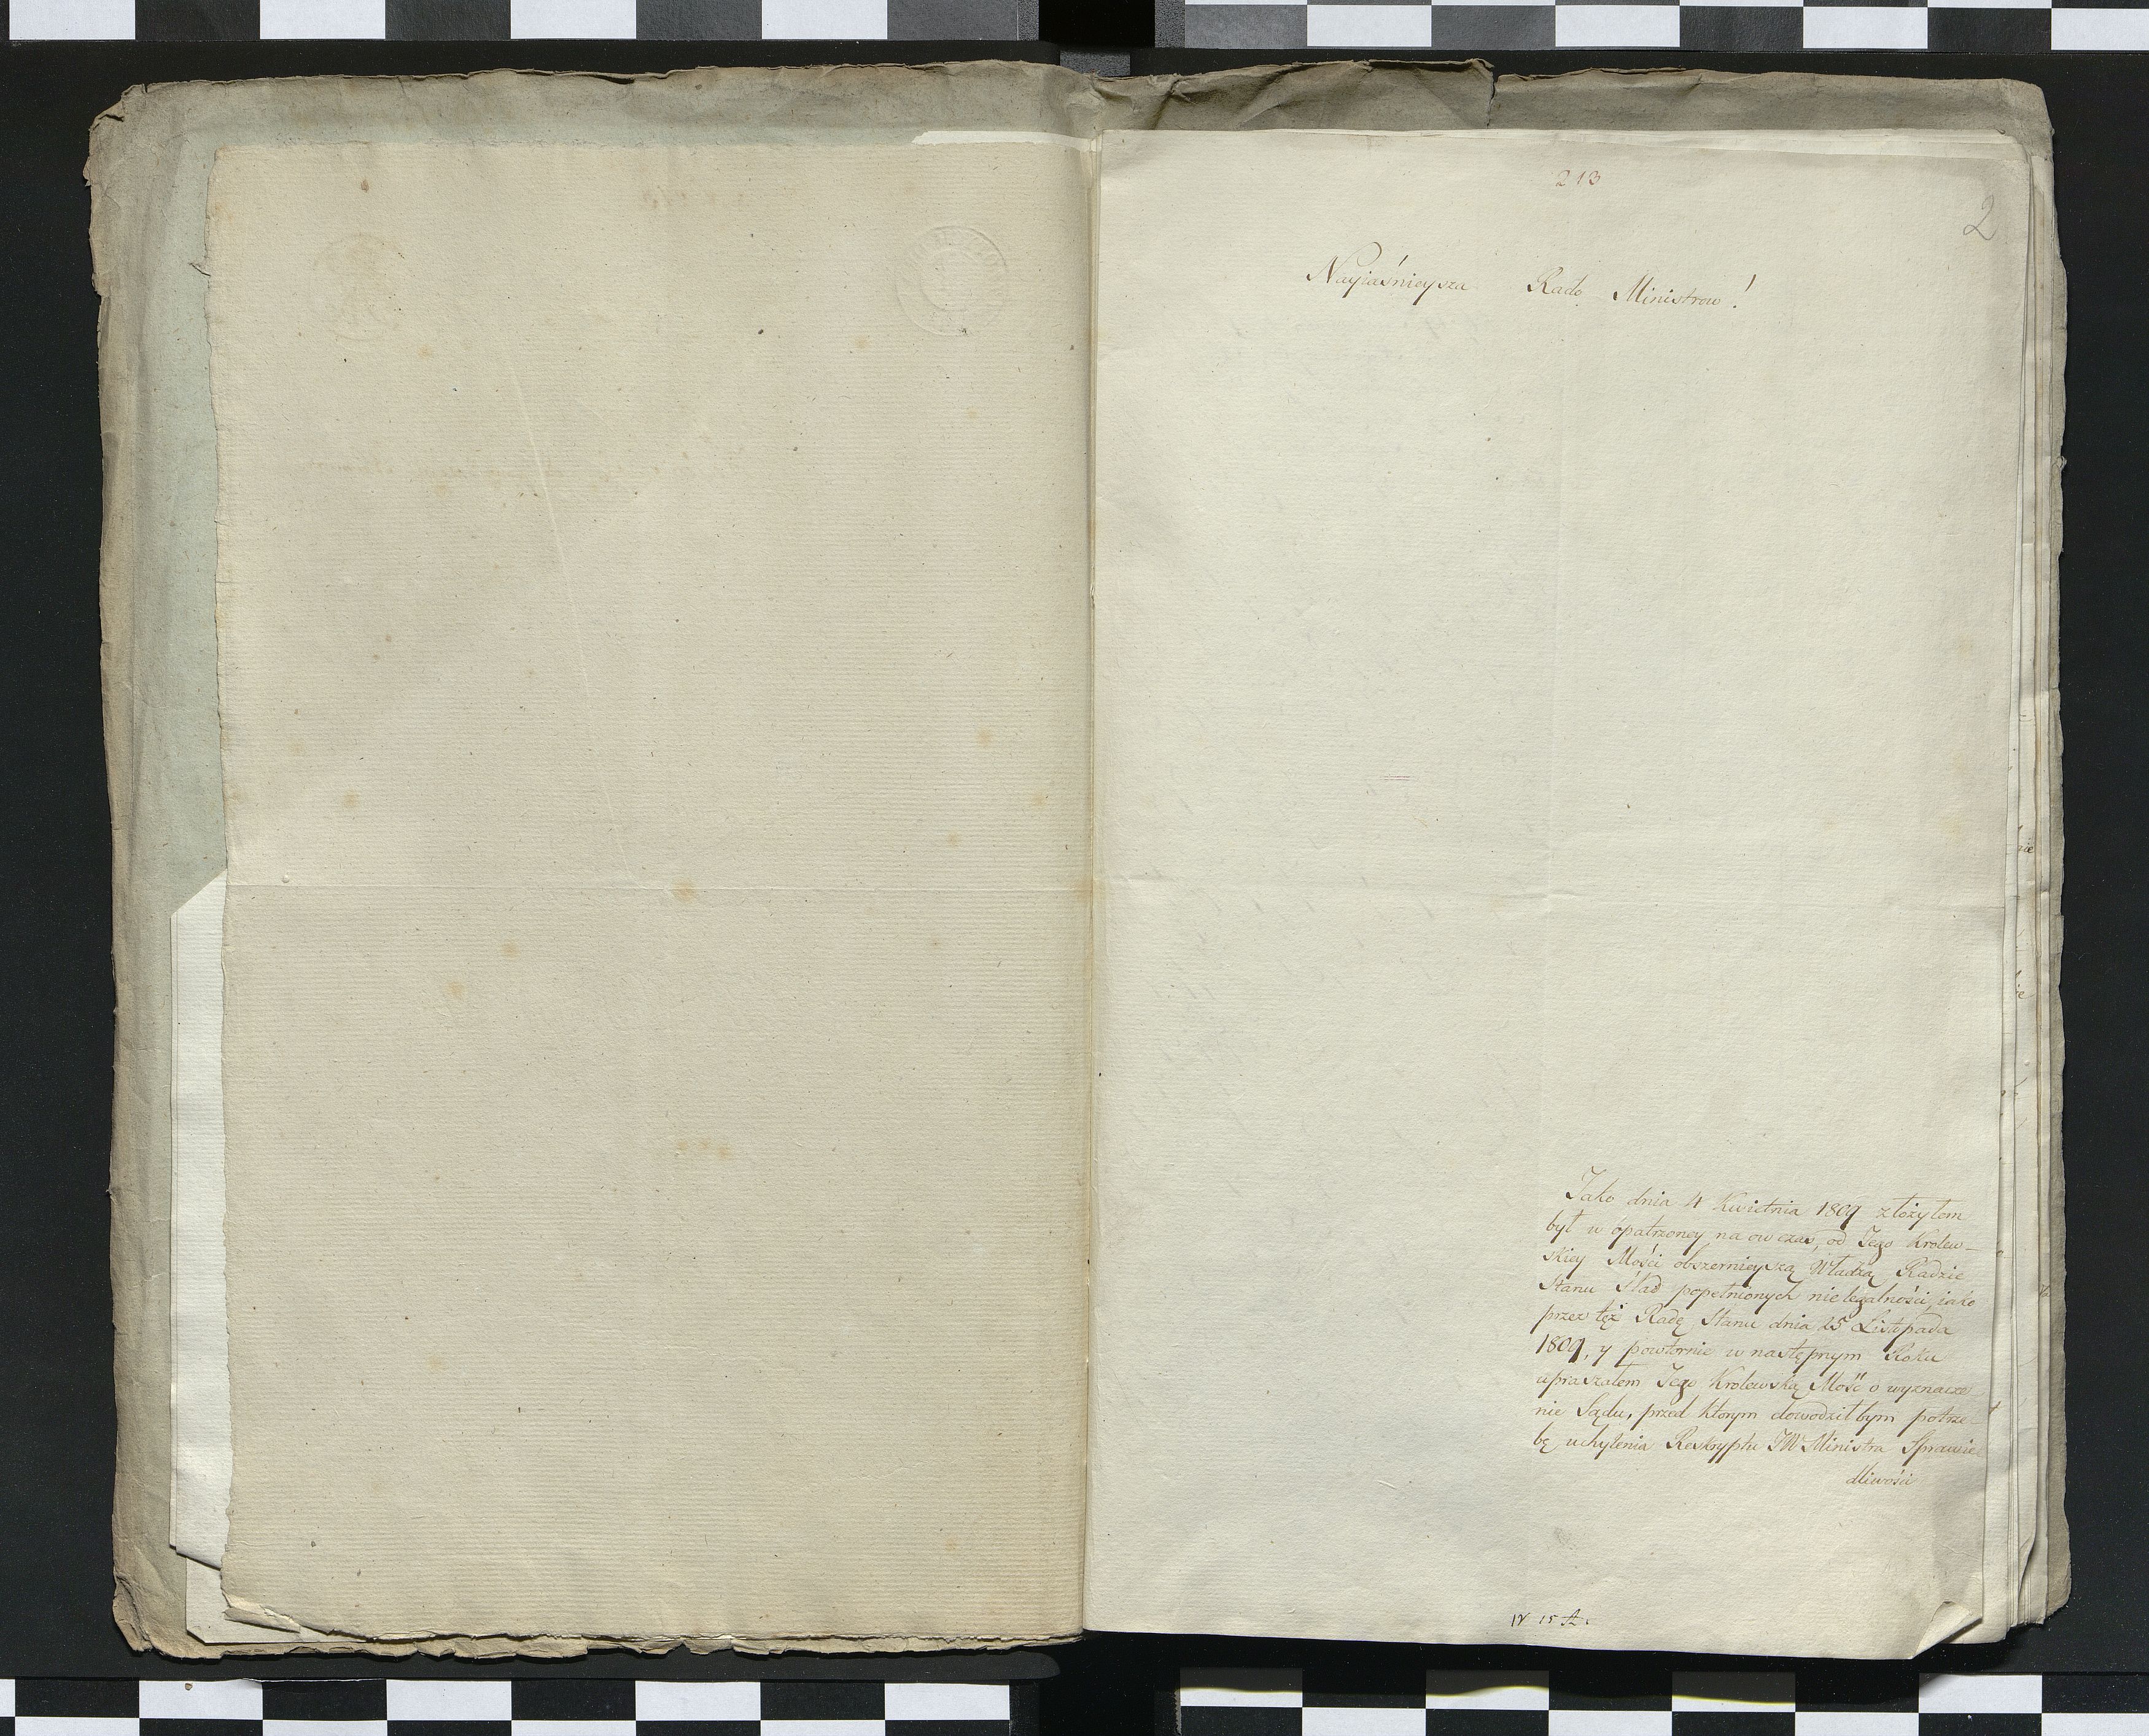 213
2
Nayiaśnieysza Rado Ministrow!
Jako dnia 4 Kwietnia 1809 złożyłem
był w opatrzoney na ow czas, od Jego Krolew-
skiey Mości obszernieyszą Władzą Radzie
Stanu Ślad popełnionych nielegalności, iako
przez też Radę Stanu dnia 25 Listopada
1809, y powtornie w następnym Roku
upraszałem Jego Krolewską Mość o wyznacze-
nie Sądu, przed ktorym dowodziłbym potrze-
bę uchylenia Reskryptu JW Ministra Sprawie-
dliwości
15